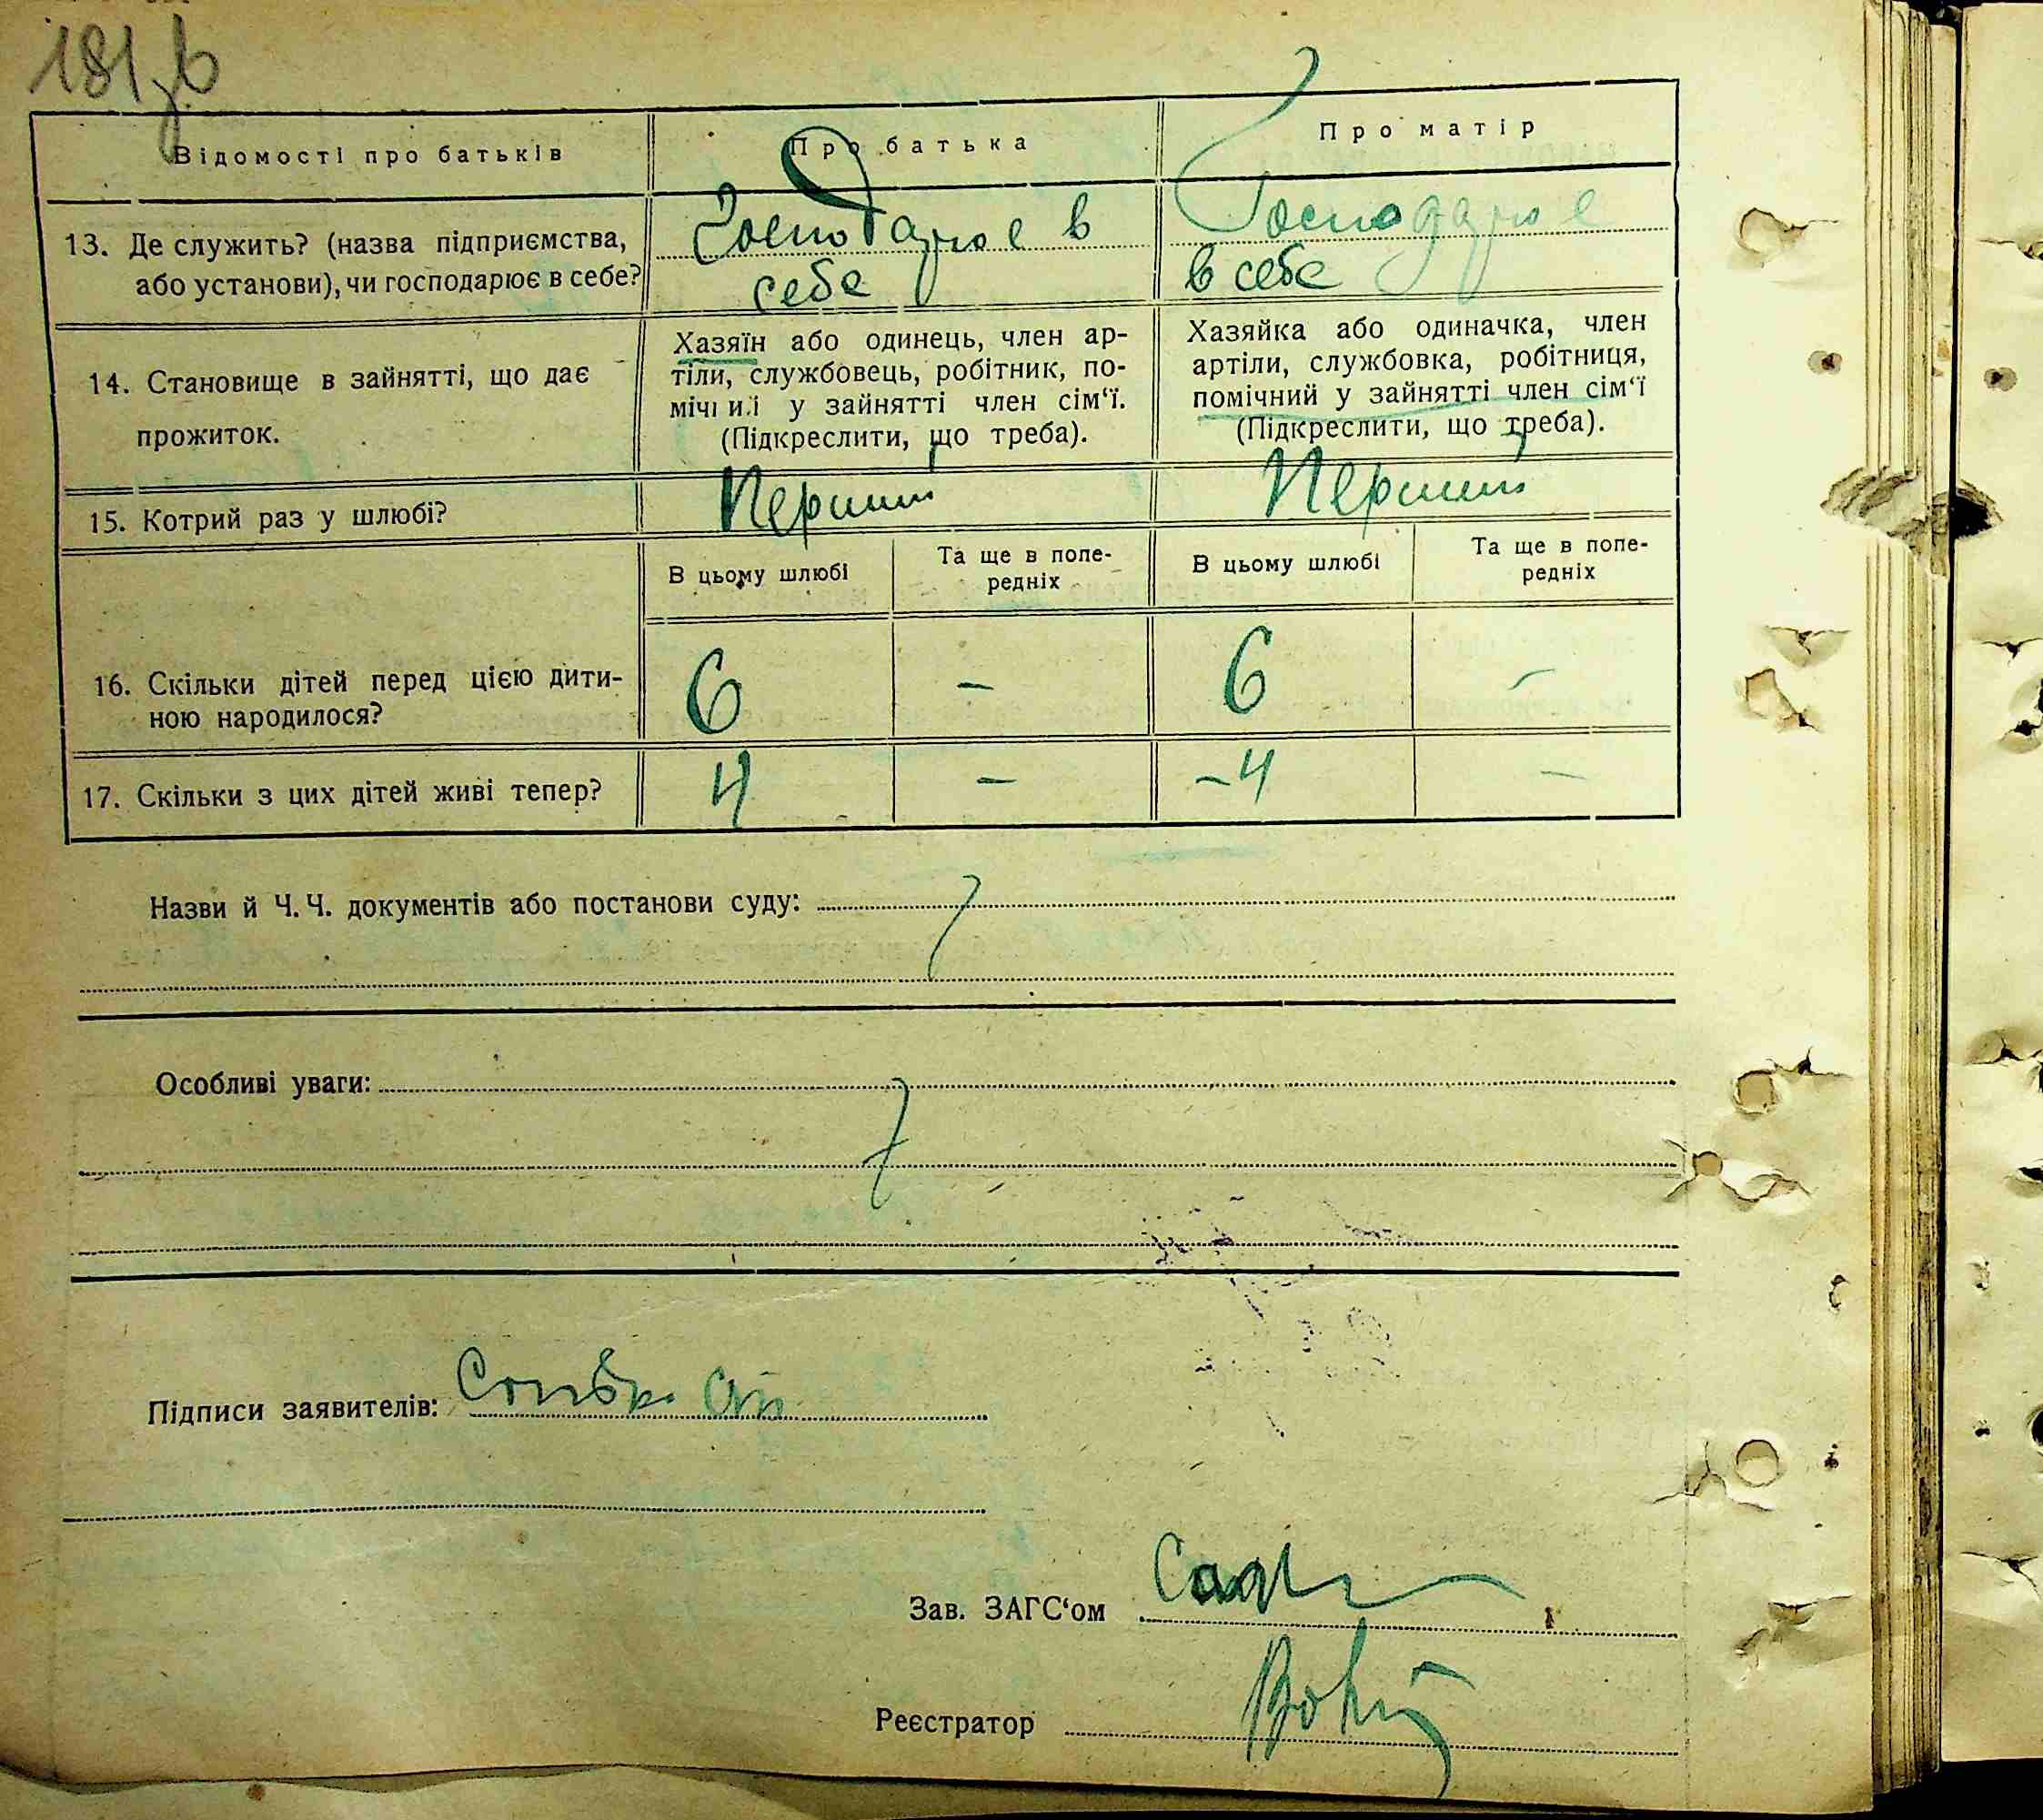 181зв
Відомості про батьків
Про батька
Про матір
13. Де служить? (назва підприємства,
або установи), чи господарює в себе?
Господарює в
себе
Господарює
в себе
14. Становище в зайнятті, що дає
прожиток.
Хазяїн або одинець, член ар-
тіли, службовець, робітник, по-
мічний у зайнятті член сім‘ї.
(Підкреслити, що треба).
Хазяйка або одиначка, член
артіли, службовка, робітниця,
помічний у зайнятті член сім‘ї
(Підкреслити, що треба).
15. Котрий раз у шлюбі?
Перший
Перший
В цьому шлюбі
Та ще в попе-
редніх
В цьому шлюбі
Та ще в попе-
редніх
16. Скільки дітей перед цією дити-
ною народилося?
6
–
6
–
17. Скільки з цих дітей живі тепер?
4
–
–4
–
Назви й Ч. Ч. документів або постанови суду:
Особливі уваги:
Підписи заявителів:
Зав. ЗАГС‘ом
Реєстратор